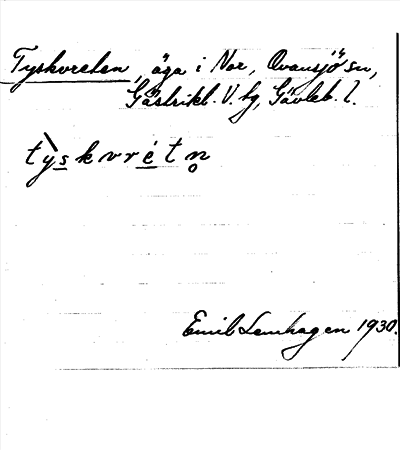 Tyskvreten, äga i Nor, Ovansjö sn,
Gästrikl. V. tg, Gävleb. l.
tỳskvrétn̥
Emil Lenhagen 1930.